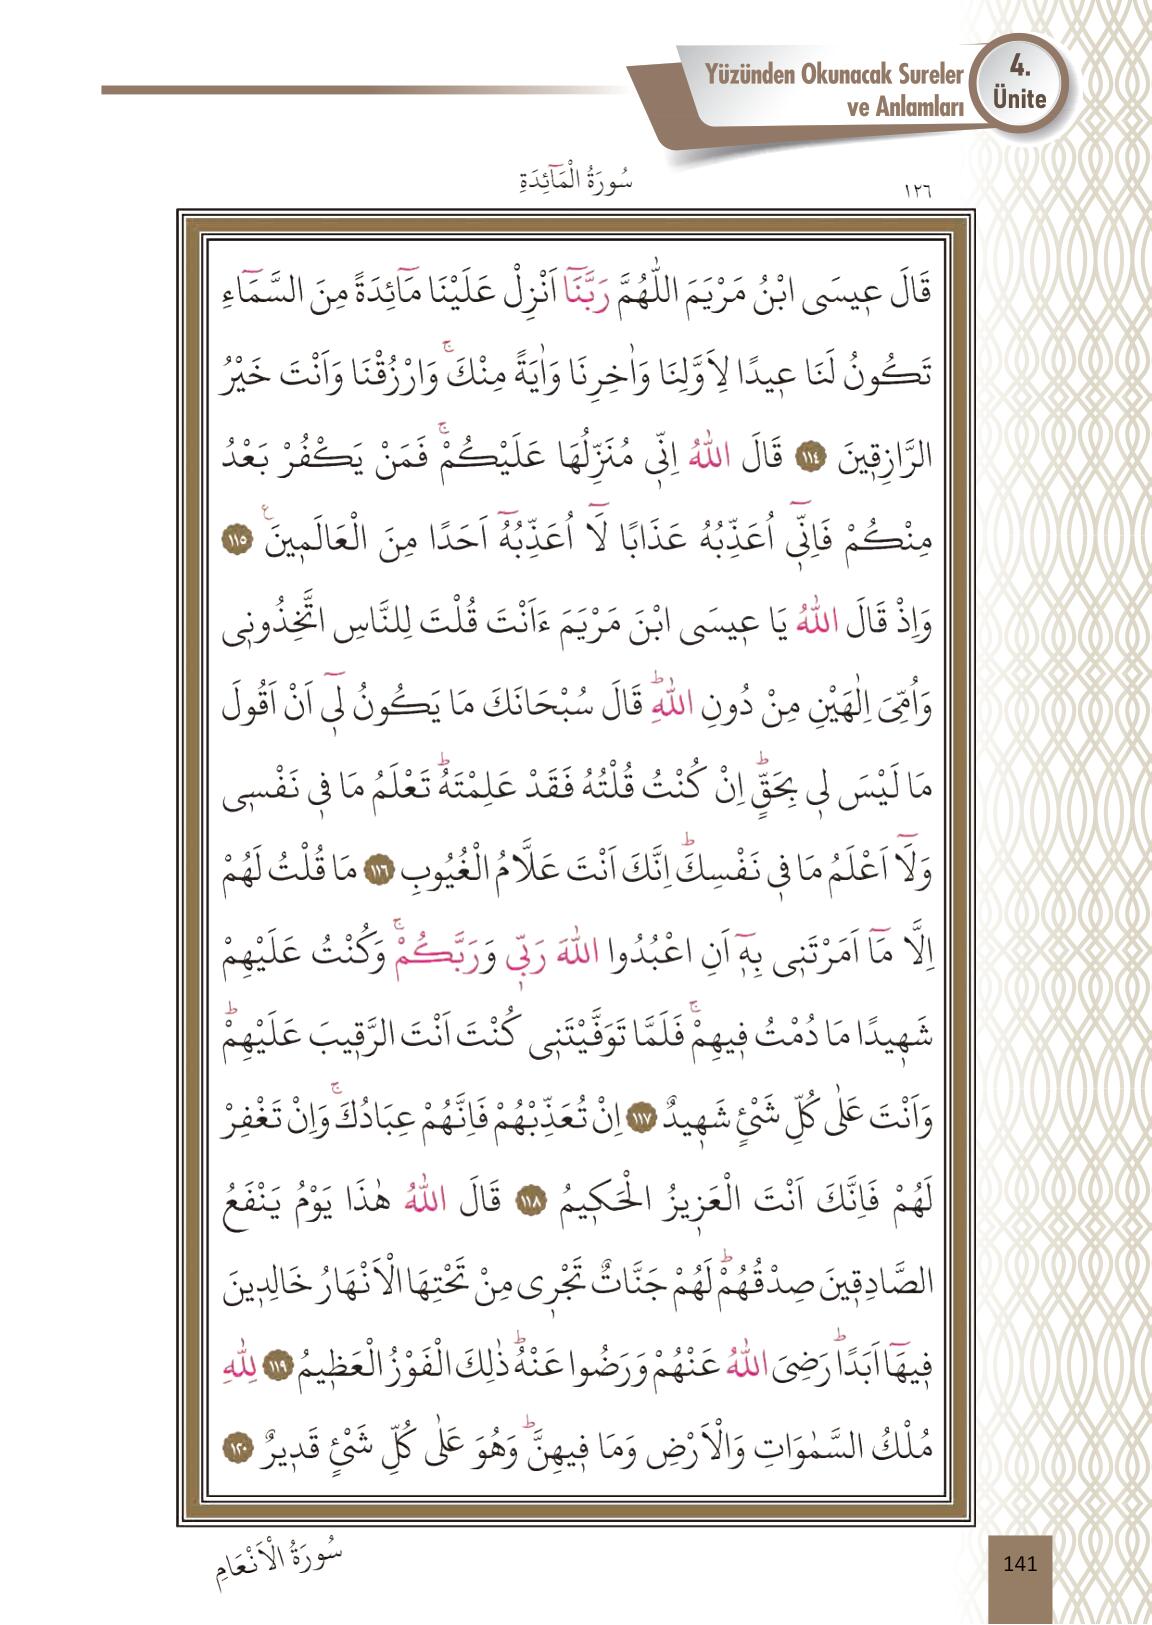 Yüzünden Okunacak Sureler
ve Anlamları
4.
Ünite
سُورَةُ الْمَٓائِدَةِ
١٢٦
قَالَ ع۪يسَى ابْنُ مَرْيَمَ اللّٰهُمَّ رَبَّنَٓا اَنْزِلْ عَلَيْنَا مَٓائِدَةً مِنَ السَّمَٓاءِ
تَكُونُ لَنَا ع۪يدًا لِاَوَّلِنَا وَاٰخِرِنَا وَاٰيَةً مِنْكَۚ وَارْزُقْنَا وَاَنْتَ خَيْرُ
الرَّازِق۪ينَ ﴿١١٤﴾ قَالَ اللّٰهُ اِنّ۪ي مُنَزِّلُهَا عَلَيْكُمْۚ فَمَنْ يَكْفُرْ بَعْدُ
مِنْكُمْ فَاِنّ۪ٓي اُعَذِّبُهُ عَذَابًا لَٓا اُعَذِّبُهُٓ اَحَدًا مِنَ الْعَالَم۪ينَ ع ﴿١١٥﴾
وَاِذْ قَالَ اللّٰهُ يَا ع۪يسَى ابْنَ مَرْيَمَ ءَاَنْتَ قُلْتَ لِلنَّاسِ اتَّخِذُون۪ي
وَاُمِّيَ اِلٰهَيْنِ مِنْ دُونِ اللّٰهِۜ قَالَ سُبْحَانَكَ مَا يَكُونُ ل۪ٓي اَنْ اَقُولَ
مَا لَيْسَ ل۪ي بِحَقٍّۜ اِنْ كُنْتُ قُلْتُهُ فَقَدْ عَلِمْتَهُۜ تَعْلَمُ مَا ف۪ي نَفْس۪ي
وَلَٓا اَعْلَمُ مَا ف۪ي نَفْسِكَۜ اِنَّكَ اَنْتَ عَلَّامُ الْغُيُوبِ ﴿١١٦﴾ مَا قُلْتُ لَهُمْ
اِلَّا مَٓا اَمَرْتَن۪ي بِه۪ٓ اَنِ اعْبُدُوا اللّٰهَ رَبّ۪ي وَرَبَّكُمْۚ وَكُنْتُ عَلَيْهِمْ
شَه۪يدًا مَا دُمْتُ ف۪يهِمْۚ فَلَمَّا تَوَفَّيْتَن۪ي كُنْتَ اَنْتَ الرَّق۪يبَ عَلَيْهِمْۜ
وَاَنْتَ عَلٰى كُلِّ شَيْءٍ شَه۪يدٌ ﴿١١٧﴾ اِنْ تُعَذِّبْهُمْ فَاِنَّهُمْ عِبَادُكَۚ وَاِنْ تَغْفِرْ
لَهُمْ فَاِنَّكَ اَنْتَ الْعَز۪يزُ الْحَك۪يمُ ﴿١١٨﴾ قَالَ اللّٰهُ هٰذَا يَوْمُ يَنْفَعُ
الصَّادِق۪ينَ صِدْقُهُمْۜ لَهُمْ جَنَّاتٌ تَجْر۪ي مِنْ تَحْتِهَا الْاَنْهَارُ خَالِد۪ينَ
ف۪يهَٓا اَبَدًاۜ رَضِيَ اللّٰهُ عَنْهُمْ وَرَضُوا عَنْهُۜ ذٰلِكَ الْفَوْزُ الْعَظ۪يمُ ﴿١١٩﴾ لِلّٰهِ
مُلْكُ السَّمٰوَاتِ وَالْاَرْضِ وَمَا ف۪يهِنَّۜ وَهُوَ عَلٰى كُلِّ شَيْءٍ قَد۪يرٌ ﴿١٢٠﴾
سُورَةُ الْاَنْعَامِ
141